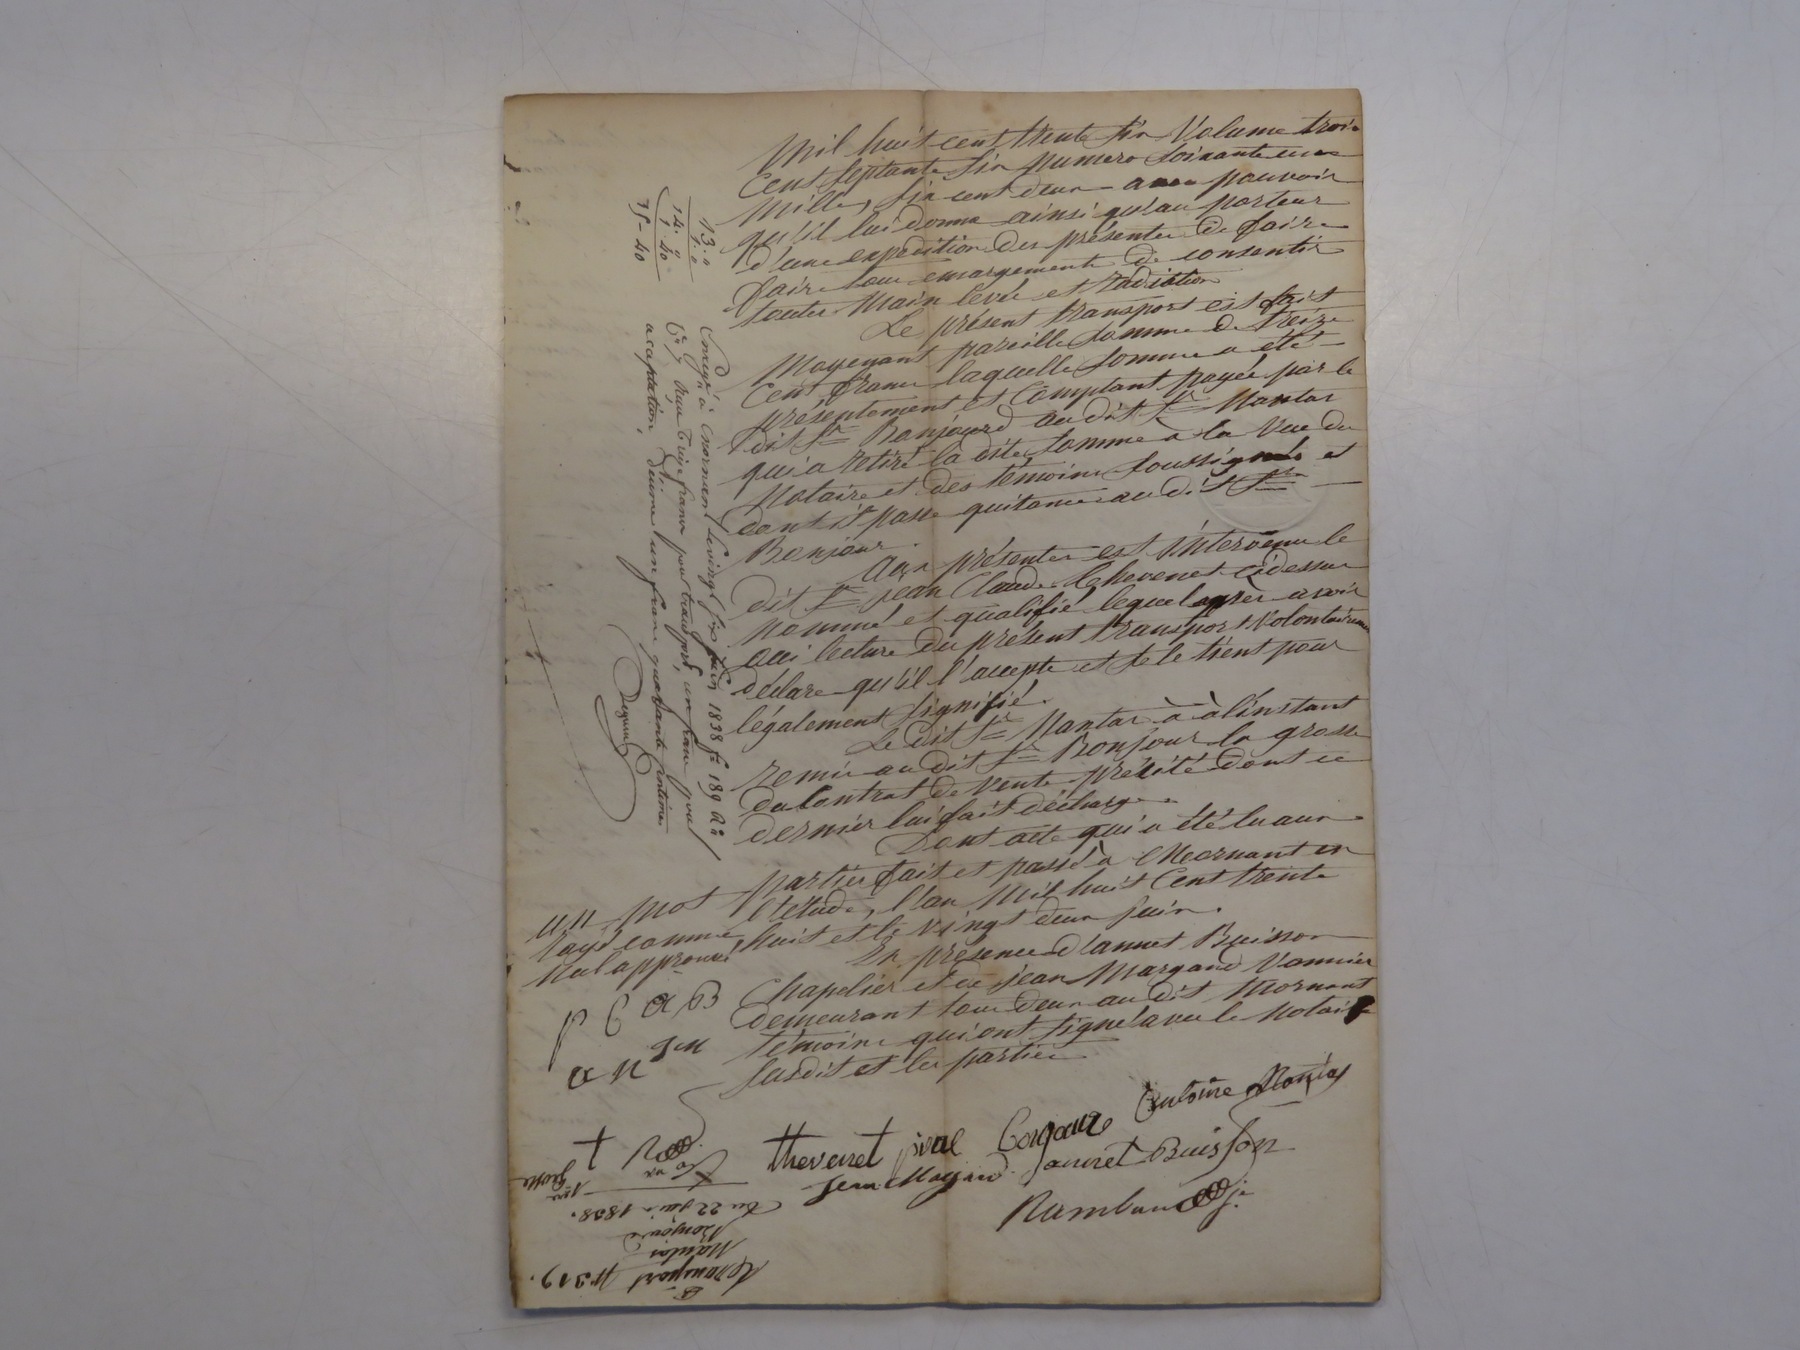 Mil huit cent trente six Volume trois
Cent septante six numero soixante une
Mille, six cent deux avec pouvoir
qu'il lui donne ainsi qu'au porteur
d'une expedition des présentes de faire
faire tous emargements de consentir
toutes Main levée et radiation
Le présent transport est fait
Moyenant pareille somme de treize
Cent francs laquelle somme a été
présentement et Comptant payée par le
dit Sr Bonjour au dit Sr Nantas
qui a retiré la dite somme à la vue du
Notaire et des témoins soussignés et
dont il passe quitance au dit Sr
Bonjour.
Aux présentes est intervenu le
dit Sr Jean Claude Thevenet cidessus
nommé et qualifié lequel après avoir
oui lecture du présent transport Volontairement
déclare qu'il l'accepte et se le tient pour
légalement signifié.
Le dit Sr Nantas à à l'instant
remis au dit Sr Bonjour la grosse
du Contrat de vente précité dont ce
dernier lui fait décharge.
Dont acte qui a été lu aux
parties fait et passé à Mornant en
l'étude, l'an Mil huit Cent trente
huit et le vingt deux juin.
En présence d'annet Buisson
Chapelier et de jean Margand Vannier
demeurant tous deux au dit Mornant
témoins qui ont signé avec le Notaire
susdit et les parties
un mot
rayé comme
nul approuvé
13..
1.
14.
1.40
15-40
à Mornant le vingt six juin 1838 fo 189 Ro
treize francs pour transport, un franc pour
acceptation, dixime un franc quarante centimes
thevenet
Antoine
Jean Magand
annet Buisson
Rambaud
Transport No 319.
Nantas
Bonjour
du 22 juin 1838.
1ere
grosse